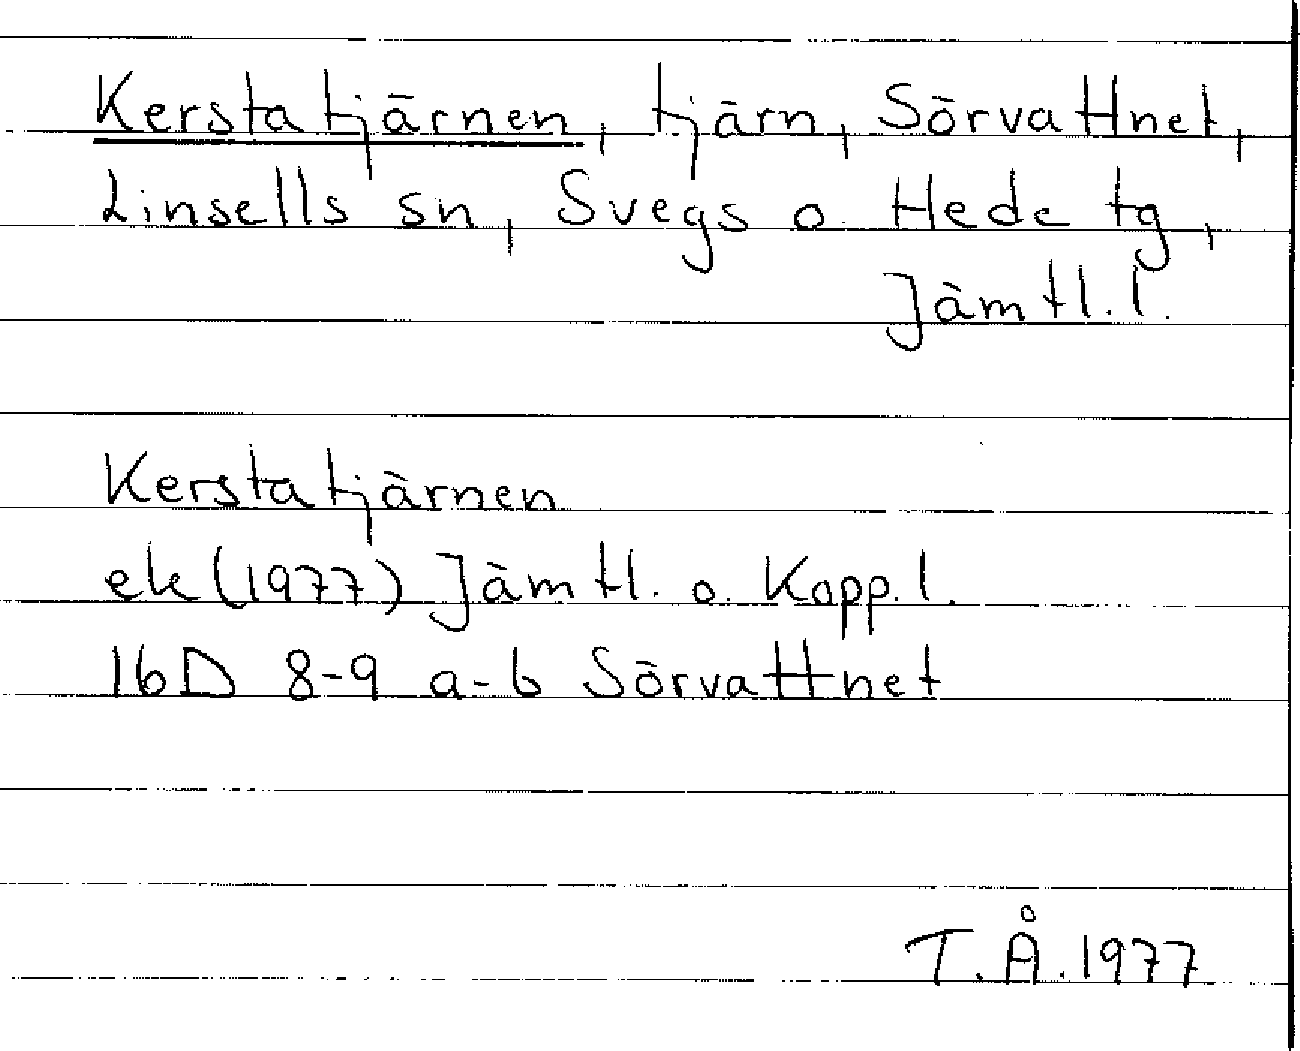 Kerstatjärnen, tjärn, Sörvattnet,
Linsells sn, Svegs o. Hede tg,
Jämtl. l.
Kerstatjärnen
ek (1977) Jämtl. o. Kopp. l.
16D 8-9 a-b Sörvattnet
T.Å. 1977